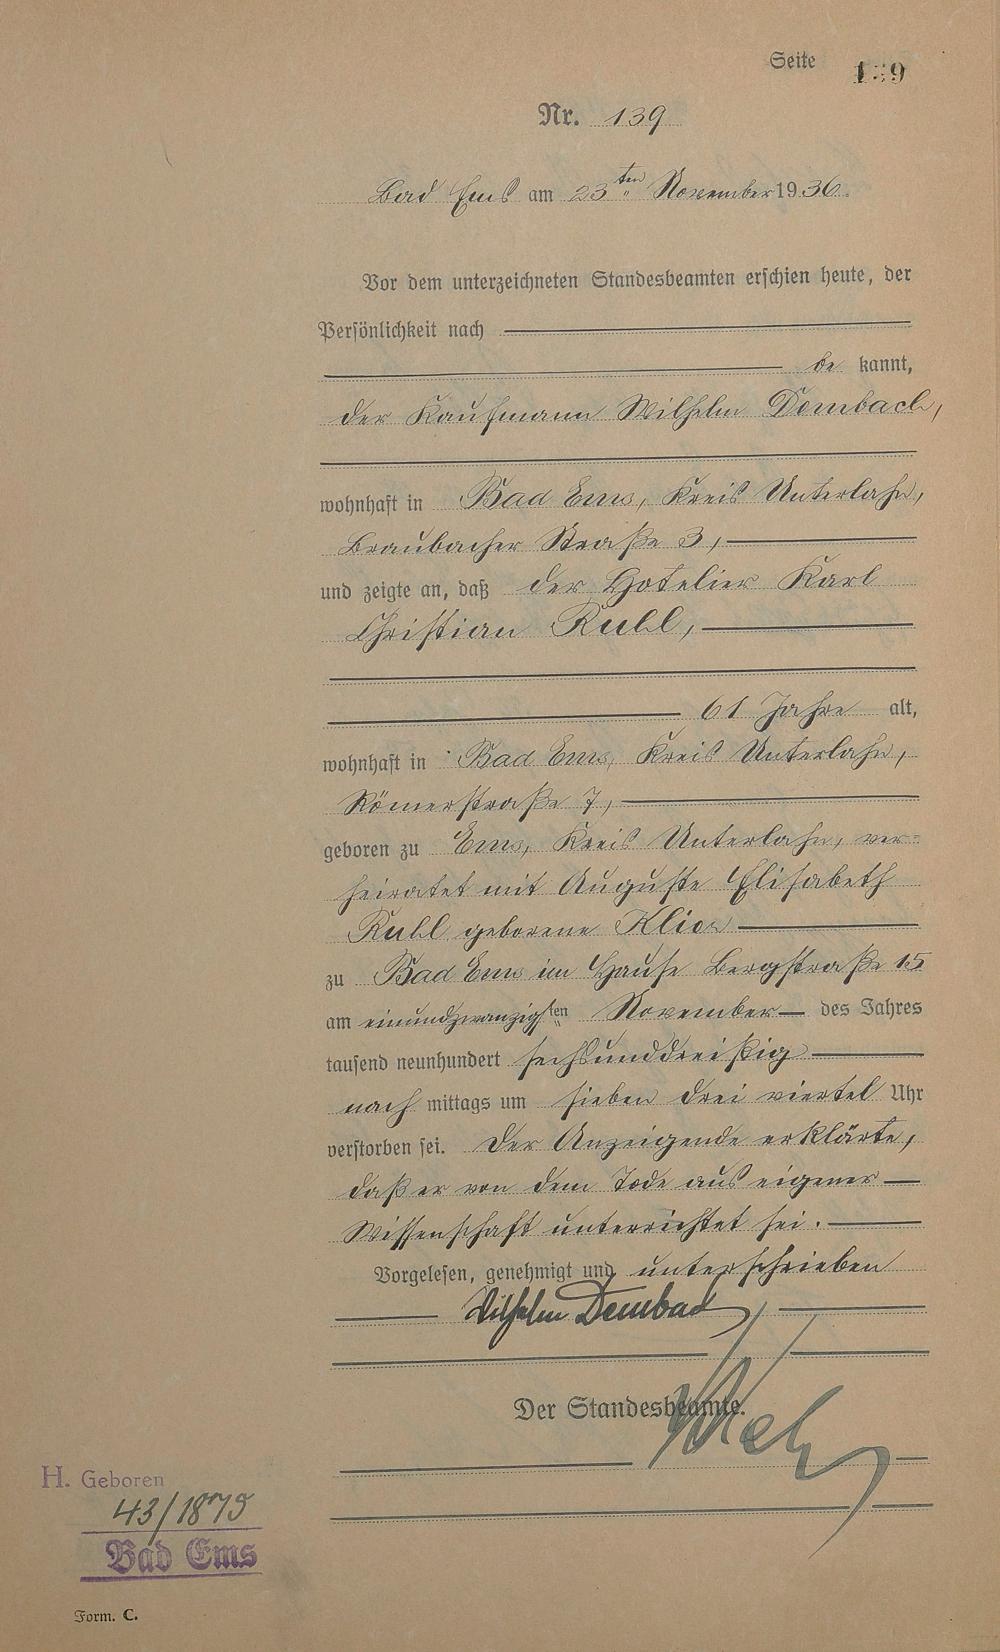 Seite 139
Nr. 139
Bad Ems am 23ten November 1936.
Vor dem unterzeichneten Standesbeamten erschien heute, der
Persönlichkeit nach
be kannt,
der Kaufmann Wilhelm Dombach,
wohnhaft in Bad Ems, Kreis Unterlahn,
Braubacher Straße 3,
und zeigte an, daß der Hotelier Karl
Christian Ruhl,
61 Jahre alt,
wohnhaft in Bad Ems, Kreis Unterlahn,
Römerstraße 7,
geboren zu Ems, Kreis Unterlahn, ver=
heiratet mit Auguste Elisabeth
Ruhl geborene
zu Bad Ems im Hause Bergstraße 15
am einundzwanzigsten November des Jahres
tausend neunhundert sechsunddreißig
nach mittags um sieben drei viertel Uhr
verstorben sei. Der Anzeigende erklärte,
daß er von dem Tode aus eigener
Wissenschaft unterrichtet sei.
Vorgelesen, genehmigt und unterschrieben
Wilhelm Dombach
Der Standesbeamte.
H. Geboren
43/1875
Bad Ems
Form. C.